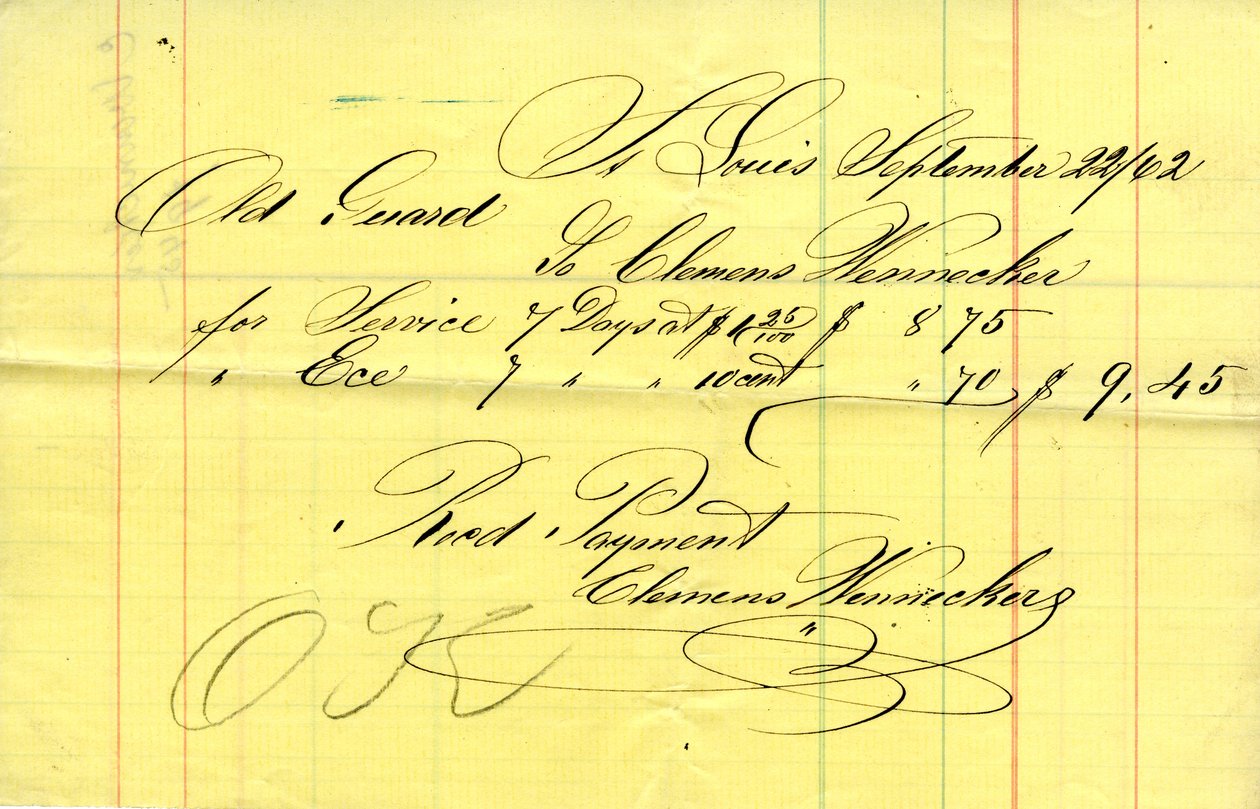 St Louis September 22/62
Old Guard
To Clemens Wennecker
for Service 7 Days at $ 1 25/100 $ 8 75
" Ece 7 " " 10 cent " 70 $ 9,45
Recd Payment
Clemens Wennecker
OK